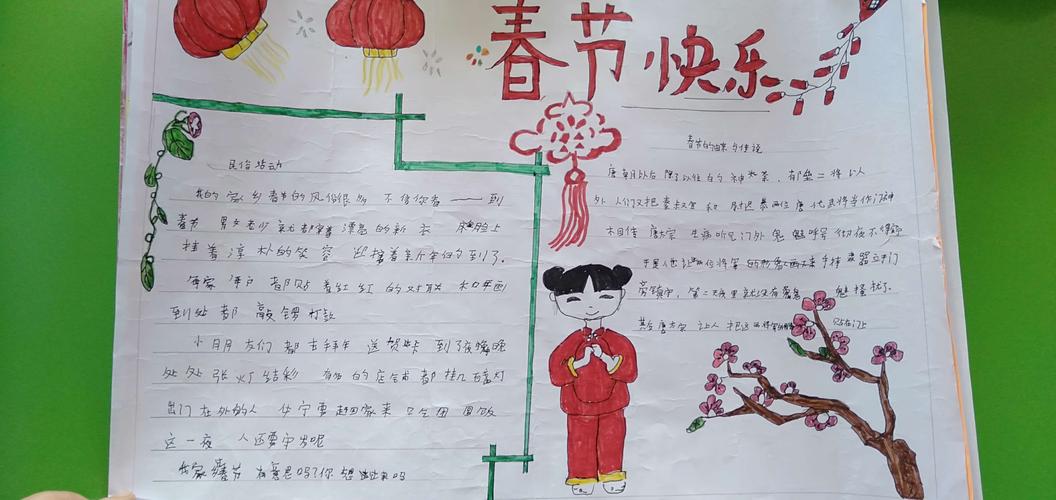 春节快乐
民俗活动
我的家乡春节的风俗很多 不信你看——到
春节 男女老少 都穿着漂亮的新衣 脸上
挂着淳朴的笑容 迎接着新年的到了.
每家 户 都贴着红红的对联 和年画
到处都敲锣打鼓
小朋友们都去拜年 送贺卡 到了夜晚
处处张灯结彩 的店铺都挂 灯
出门在外的人 赶回家来 团圆饭
这一夜 人还要守岁呢
我家 春节 有意思吗?你想 来吗
春节的 与传说
唐朝以后 除了以往的神荼、郁垒二将以
外 人们又把秦叔宝和尉迟恭两位唐代武将当作门神
相传 唐太宗 生病听见门外鬼魅呼号 彻夜不得
于是他让 位将军 手持武器立于门
旁镇守, 第二天夜里就没有 魅骚扰了.
其后唐太宗 让人把这两 在门上